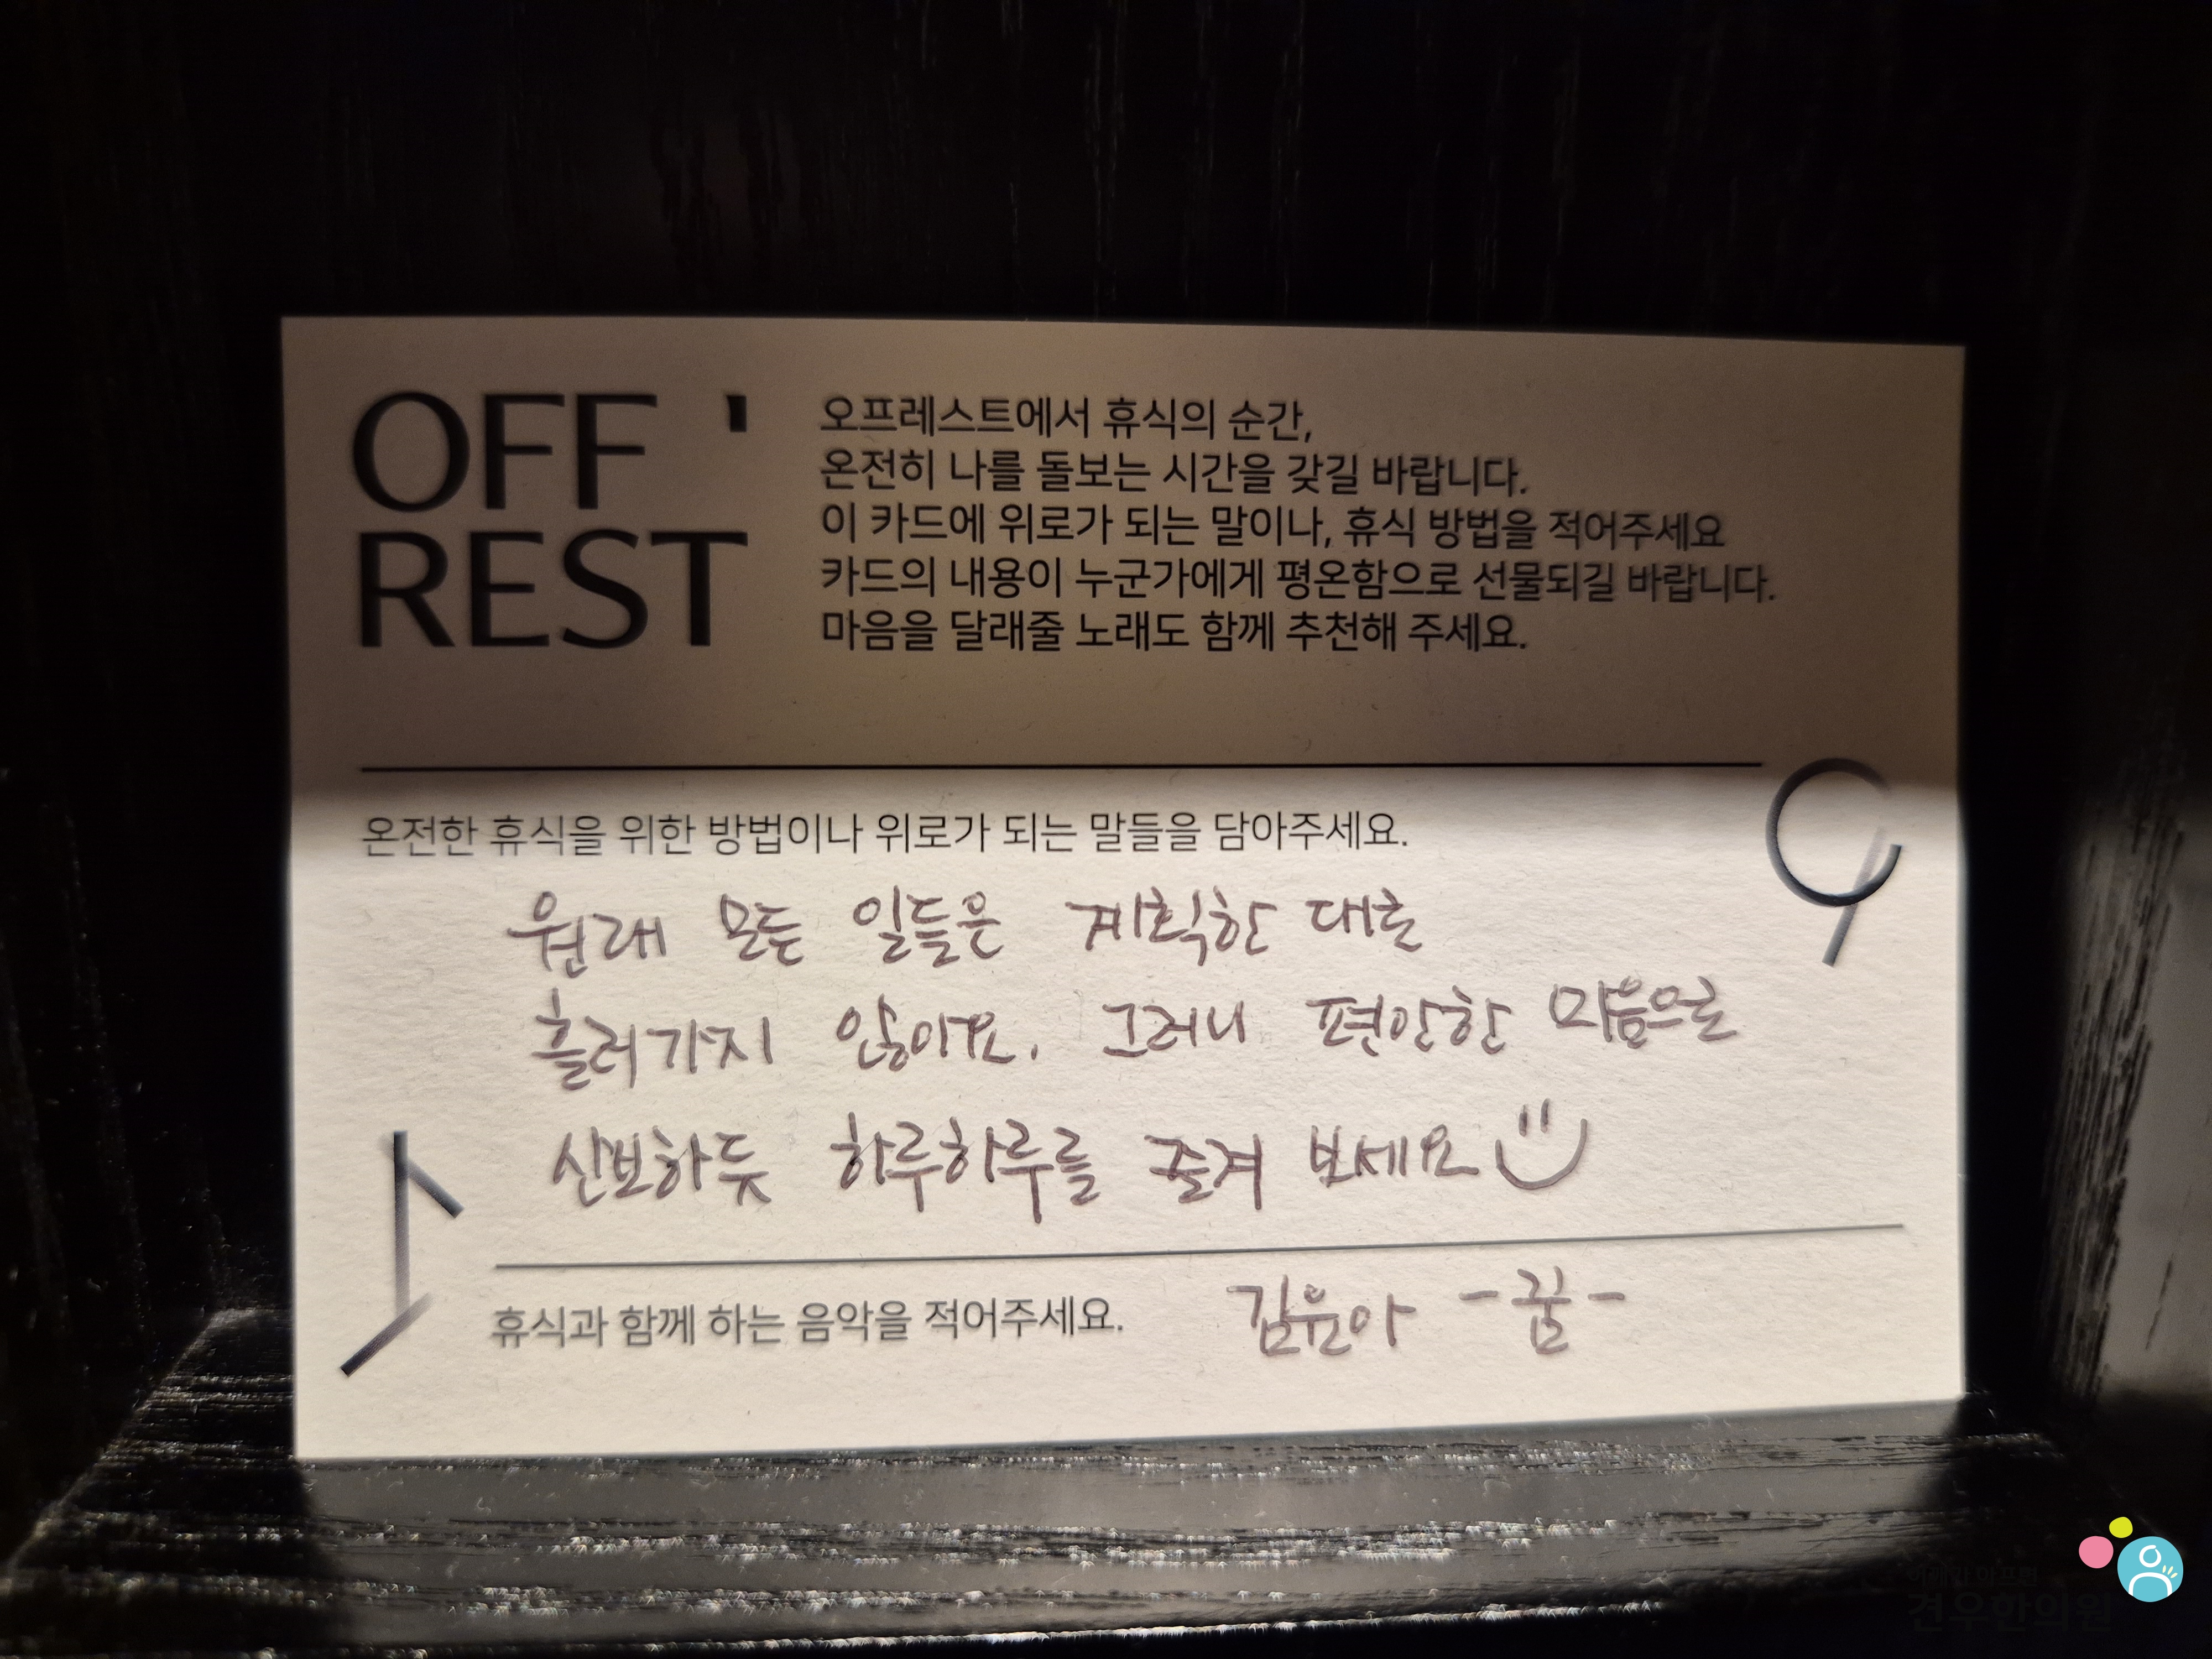 OFF '
REST
오프레스트에서 휴식의 순간,
온전히 나를 돌보는 시간을 갖길 바랍니다.
이 카드에 위로가 되는 말이나, 휴식 방법을 적어주세요
카드의 내용이 누군가에게 평온함으로 선물되길 바랍니다.
마음을 달래줄 노래도 함께 추천해 주세요.
온전한 휴식을 위한 방법이나 위로가 되는 말들을 담아주세요.
원래 모든 일들은 계획한 대로
흘러가지 않아요. 그러니 편안한 마음으로
산보하듯 하루하루를 즐겨 보세요
휴식과 함께 하는 음악을 적어주세요. 김윤아 -꿈-
견우한의원